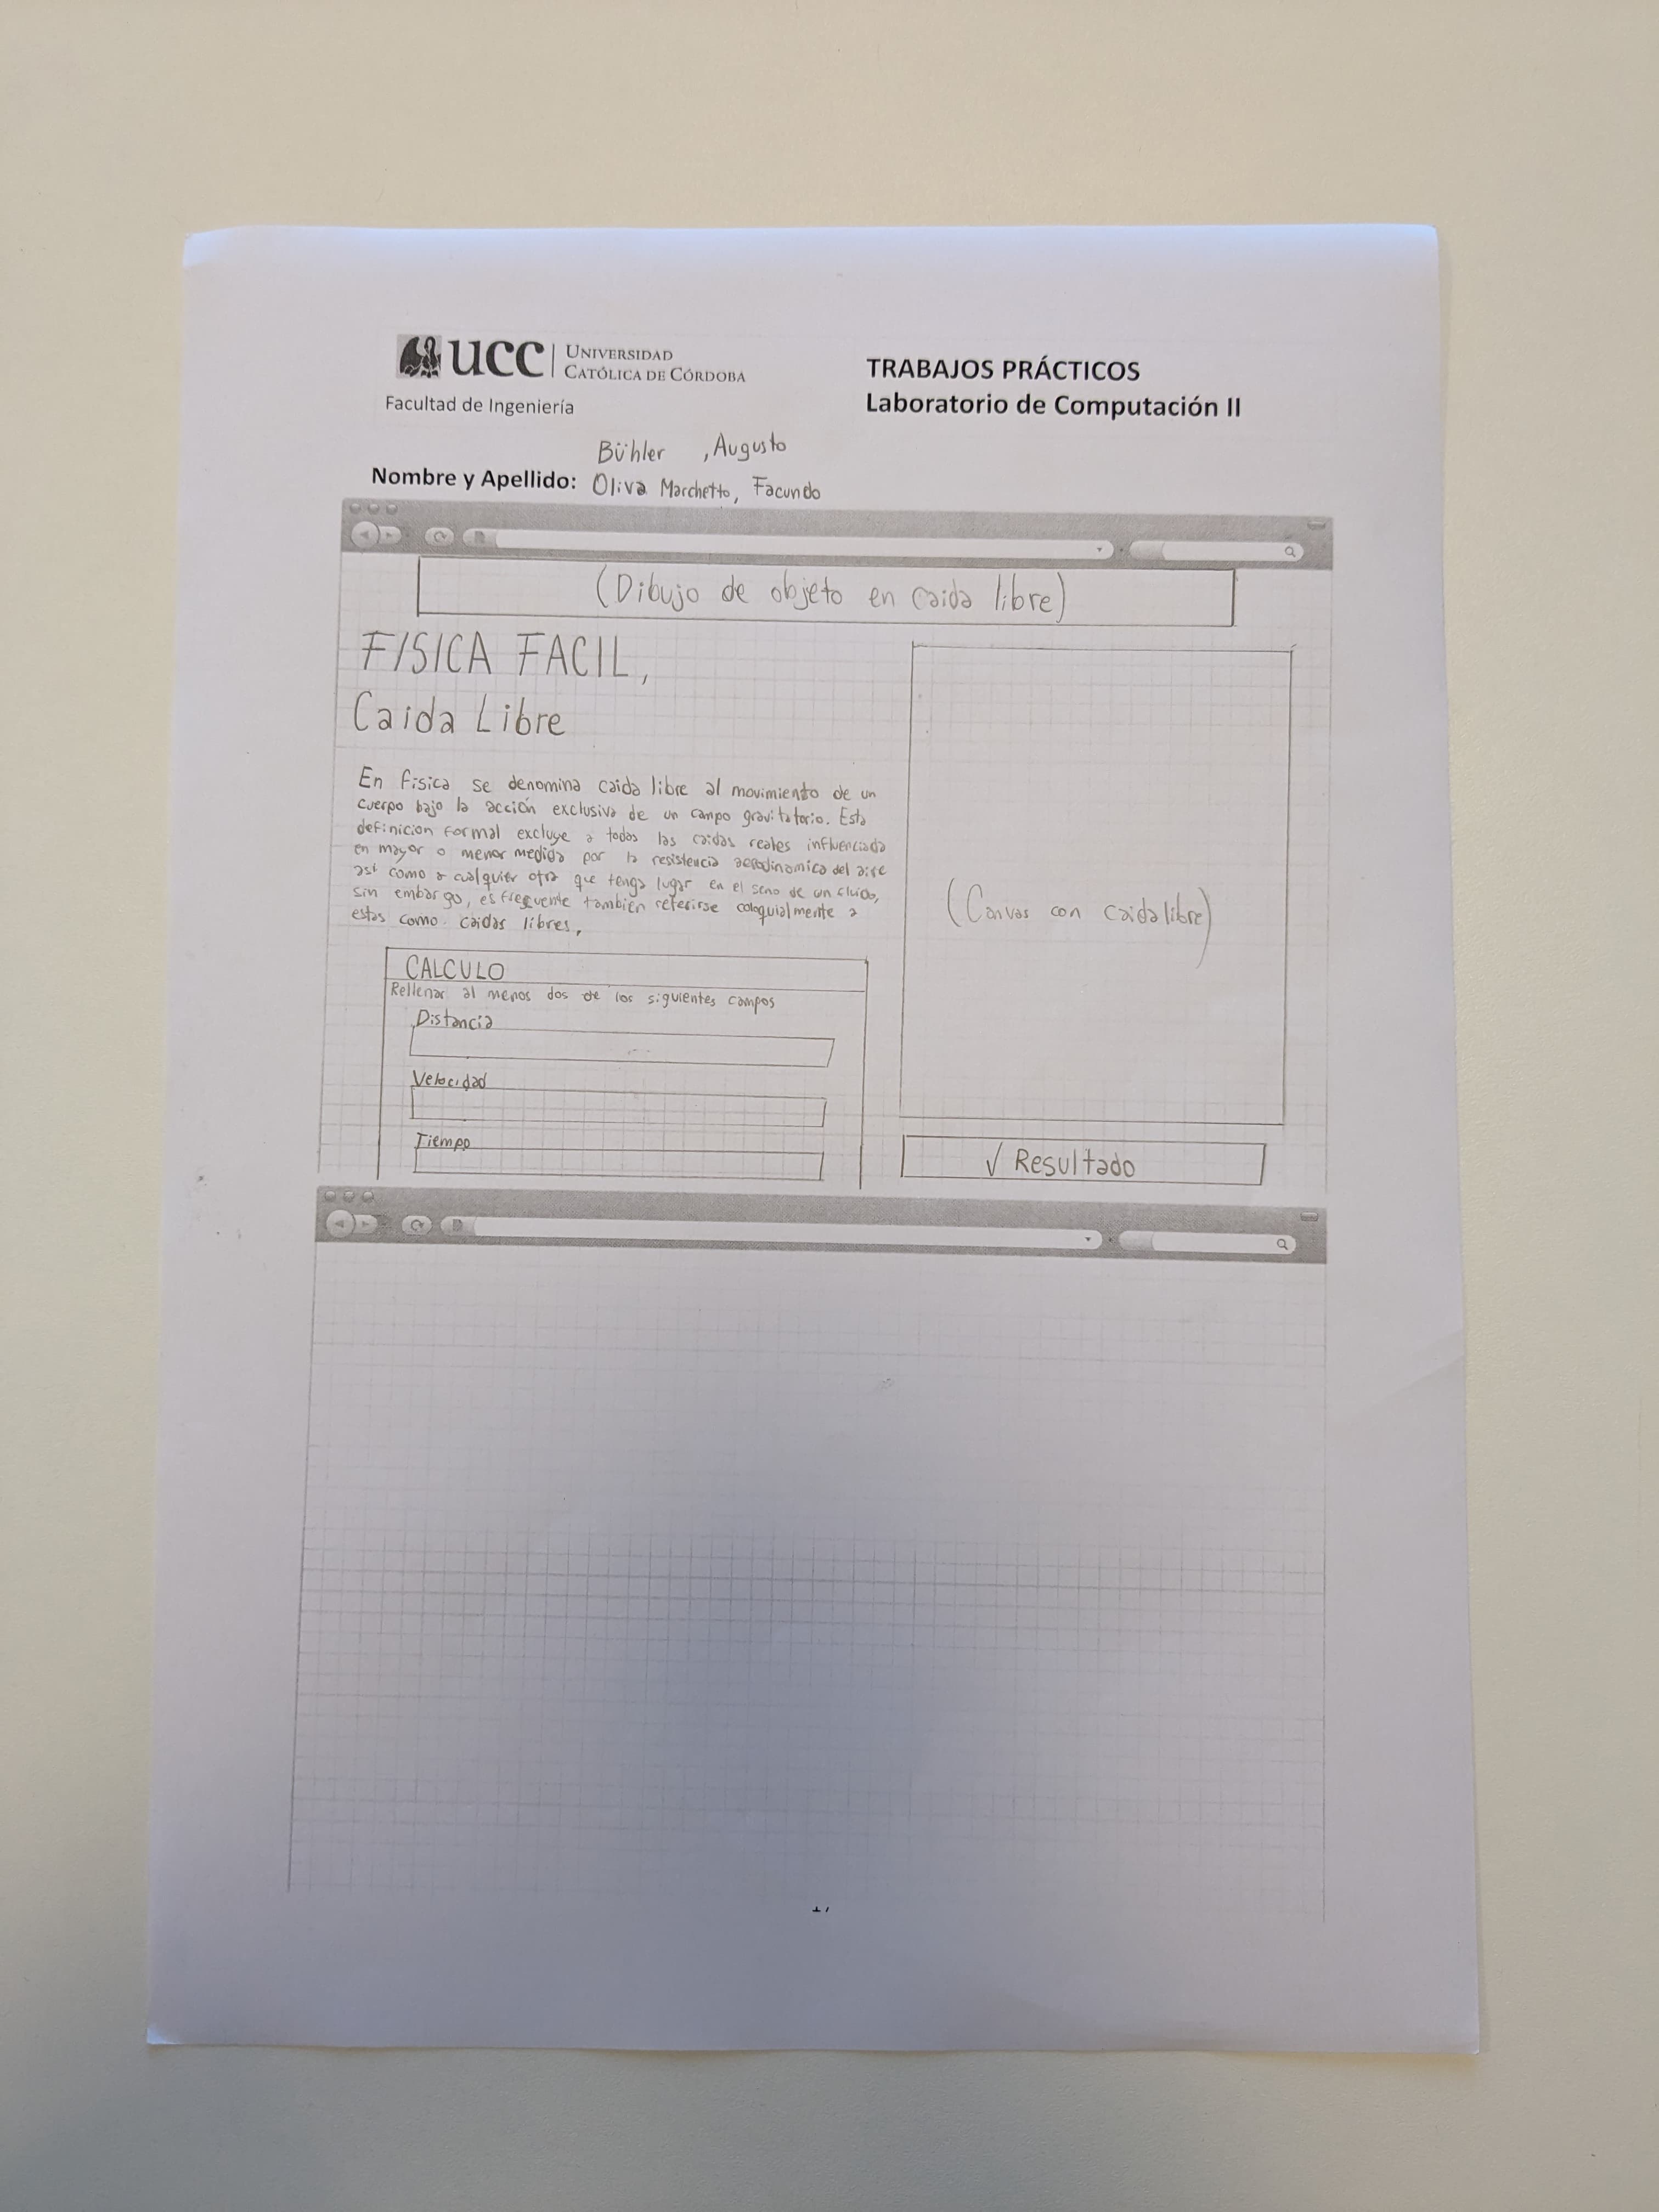 UCC UNIVERSIDAD
CATÓLICA DE CÓRDOBA
Facultad de Ingeniería
TRABAJOS PRÁCTICOS
Laboratorio de Computación II
Bühler , Augusto
Nombre y Apellido: Oliva Marchetto, Facundo
(Dibujo de objeto en caida libre)
FISICA FACIL,
Caida Libre
En fisica se denomina caida libre al movimiento de un
cuerpo bajo la acción exclusiva de un campo gravitatorio. Esta
definicion formal excluye a todas las caidas reales influenciada
en mayor o menor medida por la resistencia aerodinamica del aire
así como a cualquier otra que tenga lugar en el seno de un fluido,
sin embargo, es frecuente también referirse coloquialmente a
estas como caidas libres,
CALCULO
Rellenar al menos dos de los siguientes campos
Distancia
Velocidad
Tiempo
(Canvas con caida libre)
√ Resultado